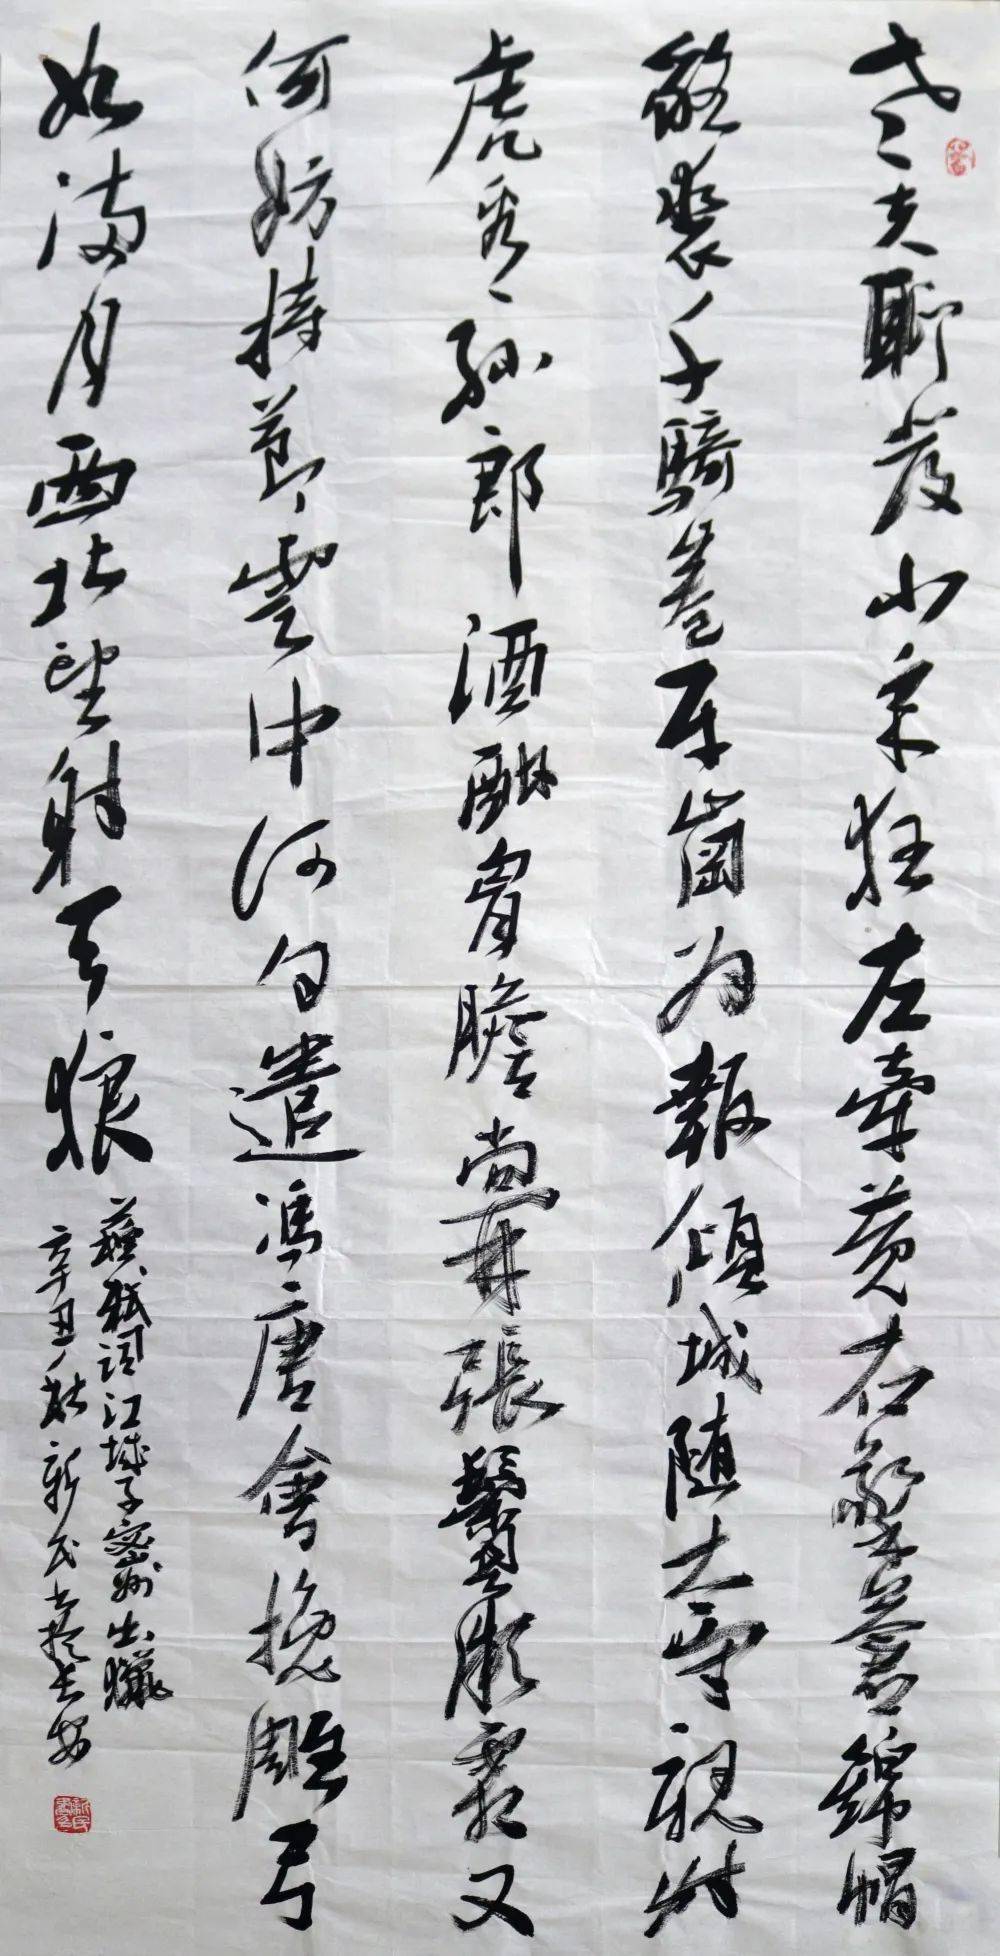 老夫聊發少年狂左牽黃右擎蒼錦帽
貂裘千騎卷平崗為報傾城随太守親射
虎看孫郎酒酣胷膽尚開張鬢微霜又
何妨持節雲中何日遣馮唐會挽雕弓
如滿月西北望射天狼
蘇軾詞江城子密州出獵
辛丑秋新民書於長安